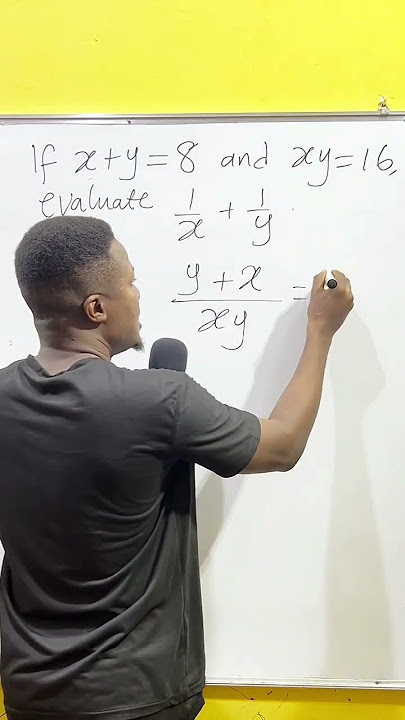 If x+y=8 and xy=16,
evaluate 1/x + 1/y
y+x/xy =